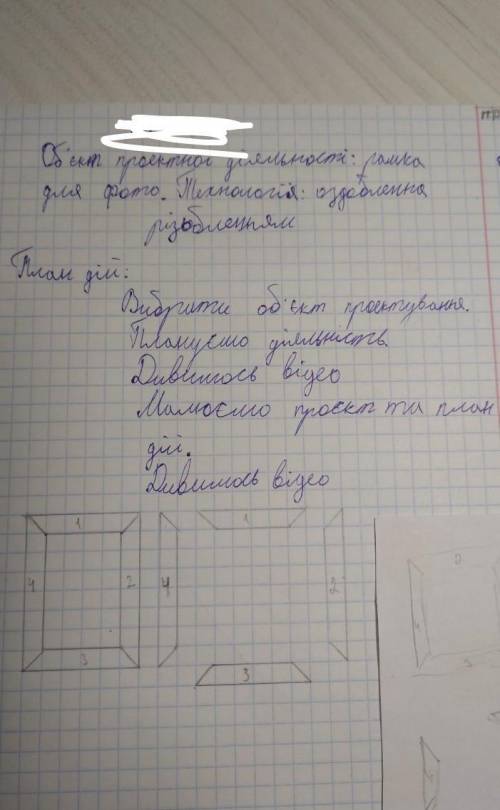 Об'єкт проєктної діяльності: рамка
для фото. Технологія: оздоблення
різьбленням
План дій:
Вибрити об'єкт проєктування.
Плануємо діяльність.
Дивимось відео
Малюємо проєкт та план
дій.
Дивимось відео
1 1
4 2 4 2
3 3